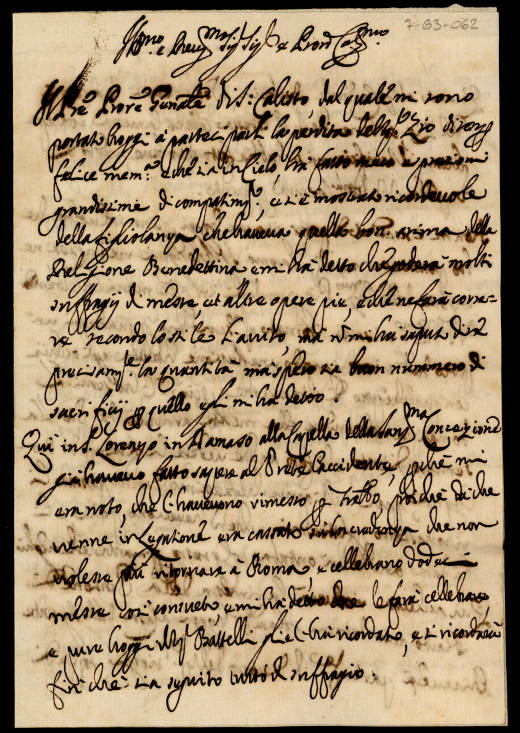 7-63-062
Ill.mo e Rev.mo Sig.r Sig.r e Pron Col.mo
Il Pre Procre Genale di S. Calisto, dal quale mi sono
portato hoggi à partecipargli la perdita dello Zio di
felice mem.a che sia in Cielo, hà fatto meco espressioni
grandissime di compatim.to, e si è mostrato ricordevole
della figliolanza che haveva quella bon: anima della
Religione Benedettina e mi hà detto che goderà molti
suffragij di messe, et altre opere pie, e che ne farà corre-
re secondo lo stile l'avviso, mà nò mi hà saputo dire
precisam.te la quantità mà spero sia buon nummero di
sacrificij p quello egli mi hà detto.
Qui in S. Lorenzo in Damaso alla Capella della San.ma Concezzione
già havevo fatto sapere al Prete l'accidente, perche mi
era noto, che l'havevono rimesso p fratello, poi che da che
venne in Legatione era cassato sù la credenza che non
volesse più ritornare à Roma, e cellebrano dodeci
messe così consueto, e mi hà detto che le farà cellebrare
e pure hoggi Mons.r Battelli glie l'hà ricordato, e si ricorderà
fin che sia seguito tutto il suffragio.